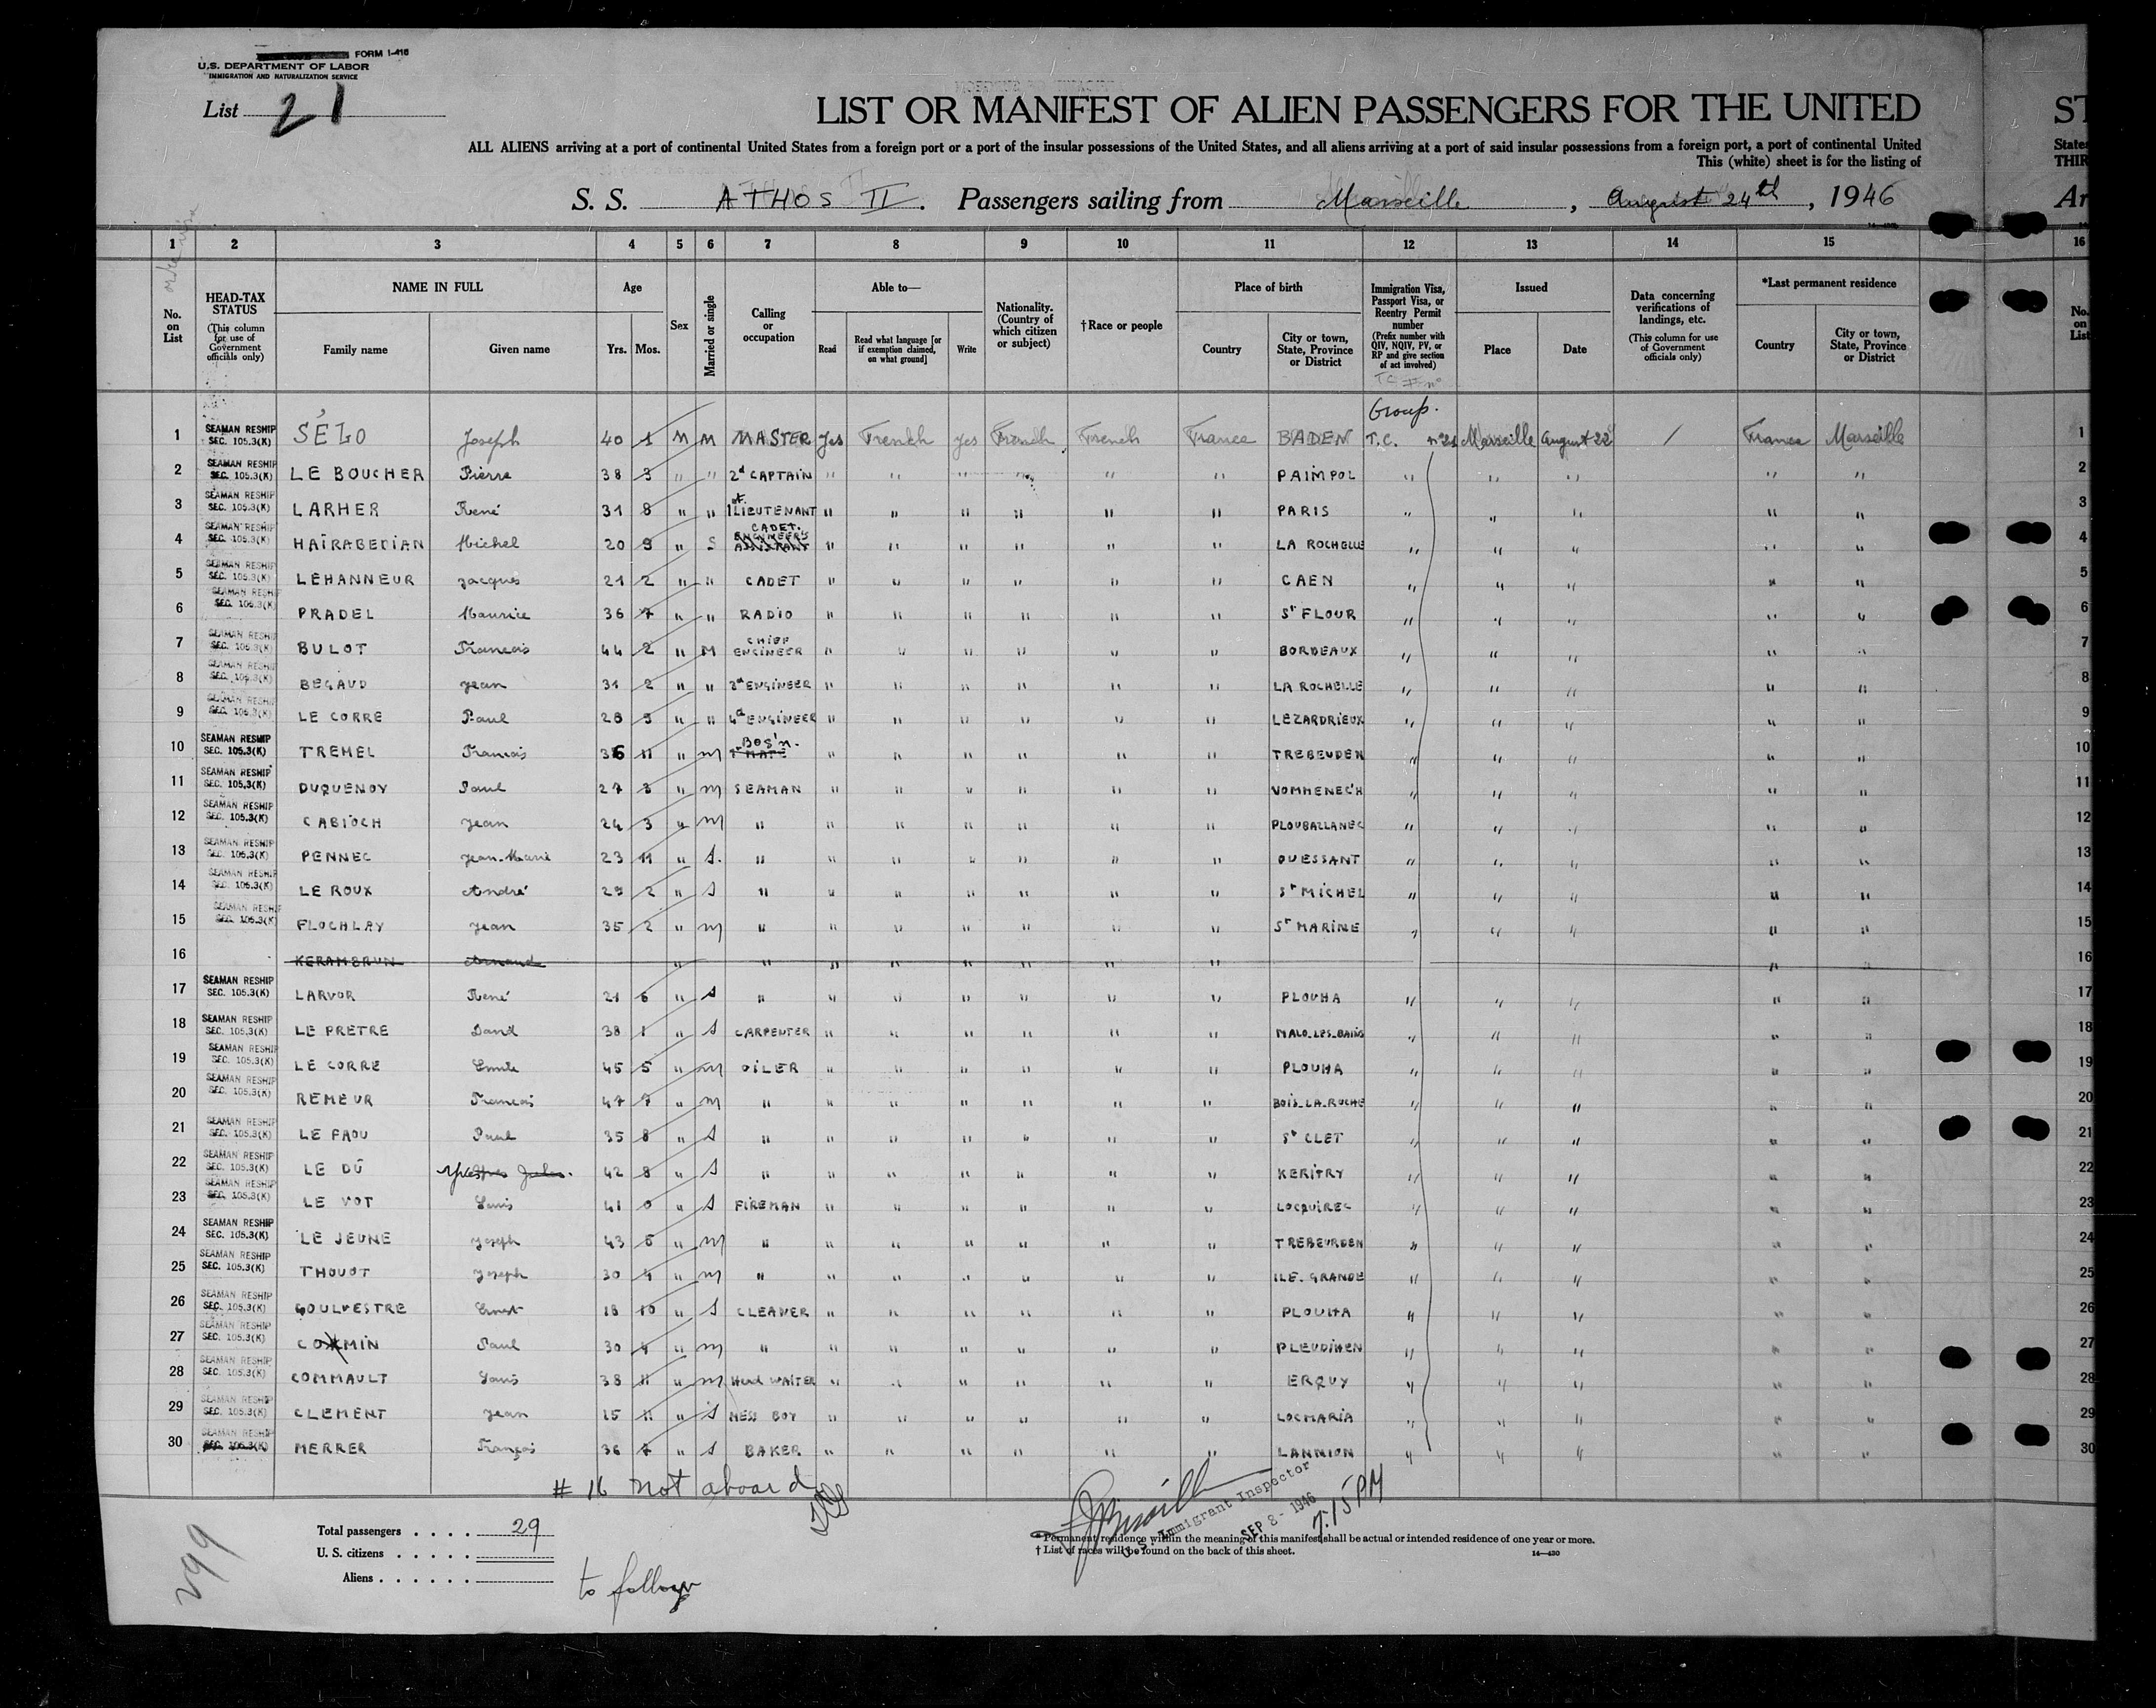 FORM I-416
U.S. DEPARTMENT OF LABOR
IMMIGRATION AND NATURALIZATION SERVICE
List 21
LIST OR MANIFEST OF ALIEN PASSENGERS FOR THE UNITED ST
ALL ALIENS arriving at a port of continental United States from a foreign port or a port of the insular possessions of the United States, and all aliens arriving at a port of said insular possessions from a foreign port, a port of continental United States
This (white) sheet is for the listing of THIR
S. S. ATHOS II. Passengers sailing from Marseille, August 24th, 1946 Ar
1 2 3 4 5 6 7 8 9 10 11 12 13 14 15 16
No. on List
HEAD-TAX STATUS (This column for use of Government officials only)
NAME IN FULL Family name Given name
Age Yrs. Mos.
Sex
Married or single
Calling or occupation
Able to— Read Read what language [or if exemption claimed, on what ground] Write
Nationality. (Country of which citizen or subject)
†Race or people
Place of birth Country City or town, State, Province or District
Immigration Visa, Passport Visa, or Reentry Permit number (Prefix number with QIV, NQIV, PV, or RP and give section of act involved)
Issued Place Date
Data concerning verifications of landings, etc. (This column for use of Government officials only)
*Last permanent residence Country City or town, State, Province or District
No. on List
Group.
1 SEAMAN RESHIP SEC. 105.3(K) SÉLO Joseph 40 1 M M MASTER Yes French yes French French France BADEN T.C. n°21 Marseille August 22 / France Marseille 1
2 SEAMAN RESHIP SEC. 105.3(K) LE BOUCHER Pierre 38 3 " " 2d CAPTAIN " " " " " " PAIMPOL " " " " " 2
3 SEAMAN RESHIP SEC. 105.3(K) LARHER René 31 8 " " 1st LIEUTENANT " " " " " " PARIS " " " " " 3
4 SEAMAN RESHIP SEC. 105.3(K) HAÏRABEDIAN Michel 20 9 " S CADET. ENGINEER'S ASSISTANT " " " " " " LA ROCHELLE " " " " " 4
5 SEAMAN RESHIP SEC. 105.3(K) LEHANNEUR Jacques 21 2 " " CADET " " " " " " CAEN " " " " " 5
6 SEAMAN RESHIP SEC. 105.3(K) PRADEL Maurice 36 7 " " RADIO " " " " " " St FLOUR " " " " " 6
7 SEAMAN RESHIP SEC. 105.3(K) BULOT François 44 2 " M CHIEF ENGINEER " " " " " " BORDEAUX " " " " " 7
8 SEAMAN RESHIP SEC. 105.3(K) BEGAUD Jean 31 2 " " ENGINEER " " " " " " LA ROCHELLE " " " " " 8
9 SEAMAN RESHIP SEC. 105.3(K) LE CORRE Paul 28 9 " " ENGINEER " " " " " " LEZARDRIEUX " " " " " 9
10 SEAMAN RESHIP SEC. 105.3(K) TREMEL François 36 11 " M BOS'n. MATE " " " " " " TREBEUDEN " " " " " 10
11 SEAMAN RESHIP SEC. 105.3(K) DUQUENOY Paul 27 3 " M SEAMAN " " " " " " VOMMENEC'H " " " " " 11
12 SEAMAN RESHIP SEC. 105.3(K) CABIOCH Jean 24 3 " M " " " " " " " PLOUBAZLANEC " " " " " 12
13 SEAMAN RESHIP SEC. 105.3(K) PENNEC Jean-Marie 23 11 " S. " " " " " " " OUESSANT " " " " " 13
14 SEAMAN RESHIP SEC. 105.3(K) LE ROUX André 29 2 " S " " " " " " " St MICHEL " " " " " 14
15 SEAMAN RESHIP SEC. 105.3(K) FLOCHLAY Jean 35 2 " M " " " " " " " St MARINE " " " " " 15
16 KERAMBRUN Armand " " " " " " " " " " 16
17 SEAMAN RESHIP SEC. 105.3(K) LARVOR René 21 6 " S " " " " " " " PLOUHA " " " " " 17
18 SEAMAN RESHIP SEC. 105.3(K) LE PRETRE David 38 1 " S CARPENTER " " " " " " MALO-LES-BAINS " " " " " 18
19 SEAMAN RESHIP SEC. 105.3(K) LE CORRE Emile 45 5 " M OILER " " " " " " PLOUHA " " " " " 19
20 SEAMAN RESHIP SEC. 105.3(K) REMEUR François 47 7 " M " " " " " " " BOIS-LA-ROCHE " " " " " 20
21 SEAMAN RESHIP SEC. 105.3(K) LE FAOU Paul 35 8 " S " " " " " " " St CLET " " " " " 21
22 SEAMAN RESHIP SEC. 105.3(K) LE DÛ Yves Jules. 42 8 " S " " " " " " " KERITRY " " " " " 22
23 SEAMAN RESHIP SEC. 105.3(K) LE VOT Louis 41 0 " S FIREMAN " " " " " " LOCQUIREC " " " " " 23
24 SEAMAN RESHIP SEC. 105.3(K) LE JEUNE Joseph 43 5 " M " " " " " " " TREBEURDEN " " " " " 24
25 SEAMAN RESHIP SEC. 105.3(K) THOUOT Joseph 30 4 " M " " " " " " " ILE-GRANDE " " " " " 25
26 SEAMAN RESHIP SEC. 105.3(K) GOULVESTRE Ernest 18 10 " S CLEANER " " " " " " PLOUHA " " " " " 26
27 SEAMAN RESHIP SEC. 105.3(K) COMMIN Paul 30 4 " M " " " " " " " PLEUDIHEN " " " " " 27
28 SEAMAN RESHIP SEC. 105.3(K) COMMAULT Louis 38 11 " M Head WAITER " " " " " " ERQUY " " " " " 28
29 SEAMAN RESHIP SEC. 105.3(K) CLEMENT Jean 15 11 " S MESS BOY " " " " " " LOCMARIA " " " " " 29
30 SEAMAN RESHIP SEC. 105.3(K) MERRER François 36 7 " S BAKER " " " " " " LANNION " " " " " 30
# 16 not aboard
Total passengers . . . . 29
U. S. citizens . . . . .
Aliens . . . . . .
299
to follow
U.S. Immigrant Inspector
SEP 8- 1946
7:15 PM
* Permanent residence within the meaning of this manifest shall be actual or intended residence of one year or more.
† List of races will be found on the back of this sheet.
14—430